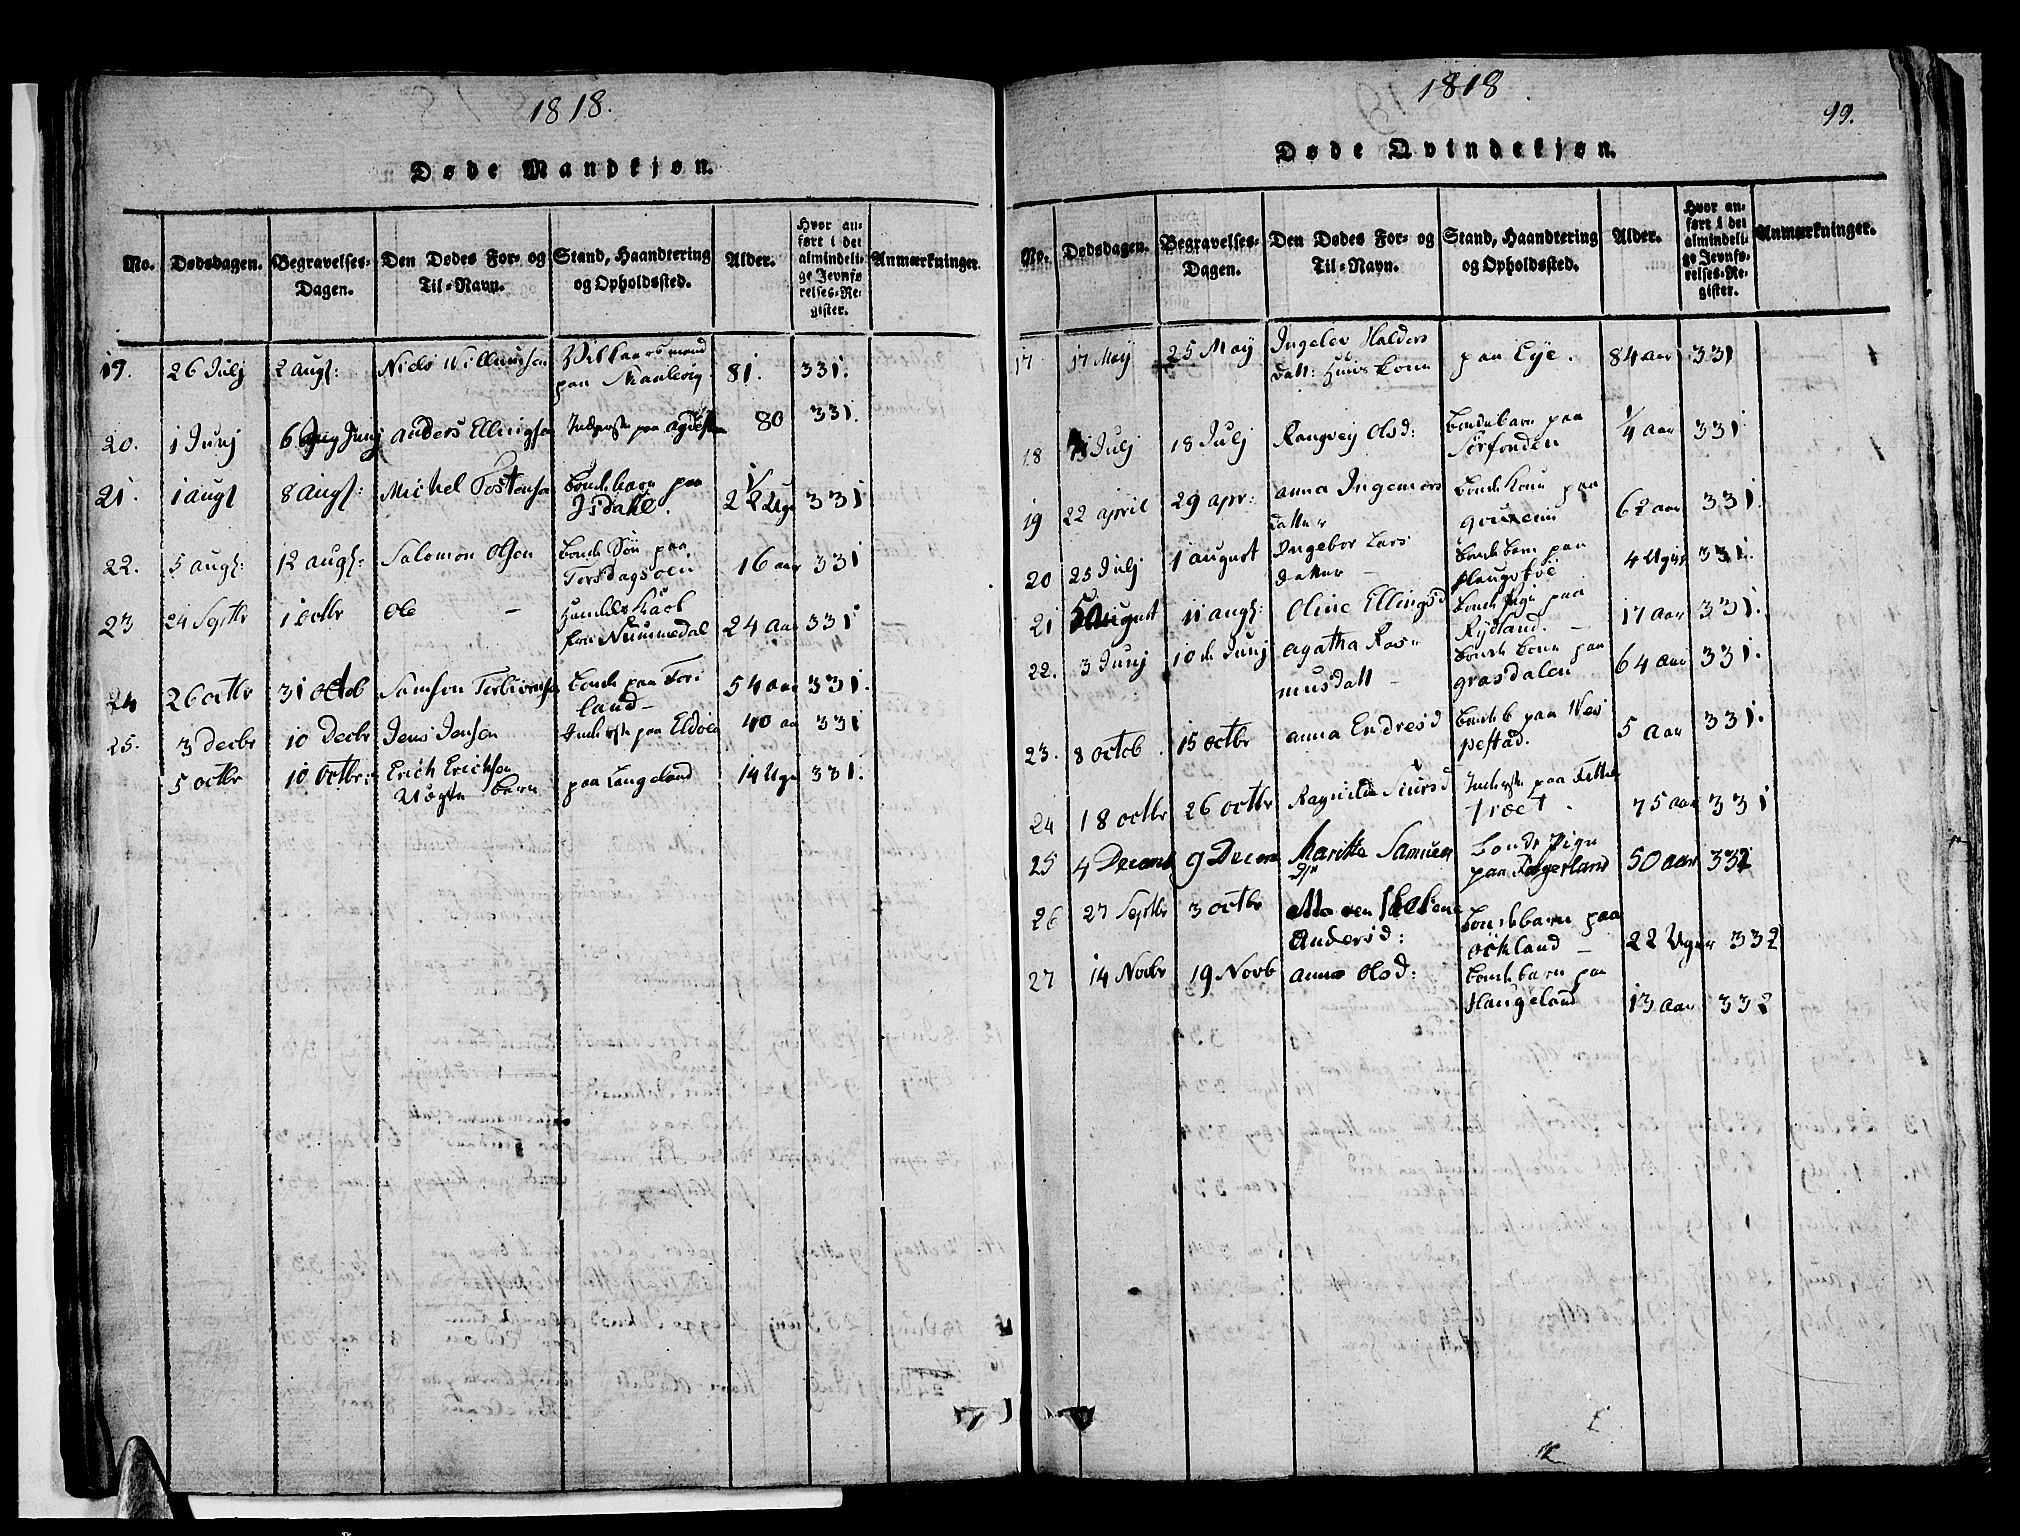 1818.
Døde Mandkjøn.
No.
Dødsdagen.
Begravelses-
Dagen.
Den Dødes For- og
Til-Navn.
Stand, Haandtering
og Opholdssted.
Alder.
Hvor an-
ført i det
almindeli-
ge Jevnfø-
relses-Re-
gister.
Anmærkninger.
19. 26 Julj 2 Augs: Niels Willumsen
paa 81. 331.
20. 1 Junj 6 Junj Anders Ellingsen paa 80 331
21. 1 augs 8 Augs: Michel Tostensen Bondebarn paa
Isdahl. 2 1/2 Uge 331
22. 5 augs: 12 augs: Salomon Olsen Bonde Søn paa
Torsdagsøen 16 aar 331
23 24 Septbr 1 octbr Ole —
fra Nummedal 24 Aar 331
24 26 octbr 31 octob Samson Bonde paa
land — 54 aar 331.
25. 3 Decbr 10 Decbr Jens Jensen paa 40 aar 331
5 octbr 10 octbr: Erich Erichsen paa Langeland 14 Uger 331.
Barn
1818
99.
Døde Qvindekjøn.
No.
Dødsdagen.
Begravelses-
Dagen.
Den Dødes For- og
Til-Navn.
Stand, Haandtering
og Opholdssted.
Alder.
Hvor an-
ført i det
almindeli-
ge Jevnfø-
relses-Re-
gister.
Anmærkninger.
17 17 May 25 May Ingelev Halders
datt: Huus Kone paa Eye. 84 aar 331
18 Julj 18 Julj Rangvey Olsd: Bondebarn paa
1/4 aar 331
19 22 april 29 apr: Anna Ingemers
datter Bonde Kone paa
62 aar 331.
20 25 Julj 1 august Ingebor Lars
datter — Bonde barn paa
4 Uger 331.
21 August 11 augs: Oline Ellingsd Bonde Pige paa
Rydland. — 17 aar 331.
22. 3 Junj 10 de Junj Agatha Ras-
musdatt — Bonde Kone paa
Grasdalen 64 aar 331.
23. 8 octob. 15 octbr Anna Endresd Bonde b paa Wes
pestad. 5 aar 331.
24 18 octbr 26 octbr Ragnilda Siursd paa
træet. 75 aar 331
25 4 Decemb 9 Decem Maritte Samuels
D: Bonde Pige
paa Fagerland 50 aar 332
26 27 Septbr 3 octbr
Andersd: Bondebarn paa
Ockland — 22 Uger 332
27 14 Novbr 19 Novb Anna Olsd: Bondebarn paa
Haugeland 13 aar 332